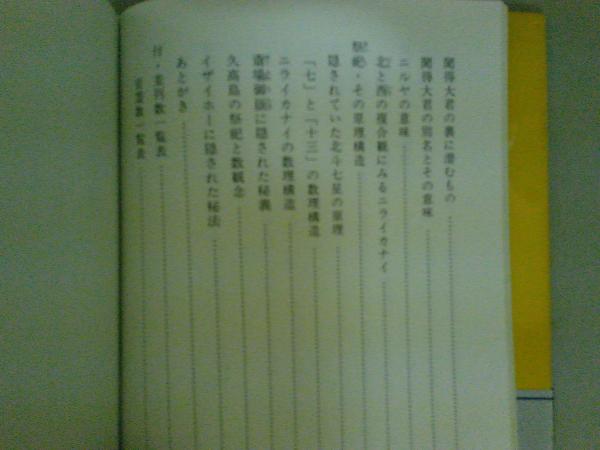 聞得大君の裏に潜むもの
聞得大君の別名とその意味
ニルヤの意味
北と西の複合観にみるニライカナイ
祭祀・その原理構造
隠されていた北斗七星の原理
「七」と「十三」の数理構造
ニライカナイの数理構造
斎場御嶽に隠された秘義
久高島の祭祀と数観念
イザイホーに隠された秘法
あとがき
付・業書数一覧表
言霊数一覧表